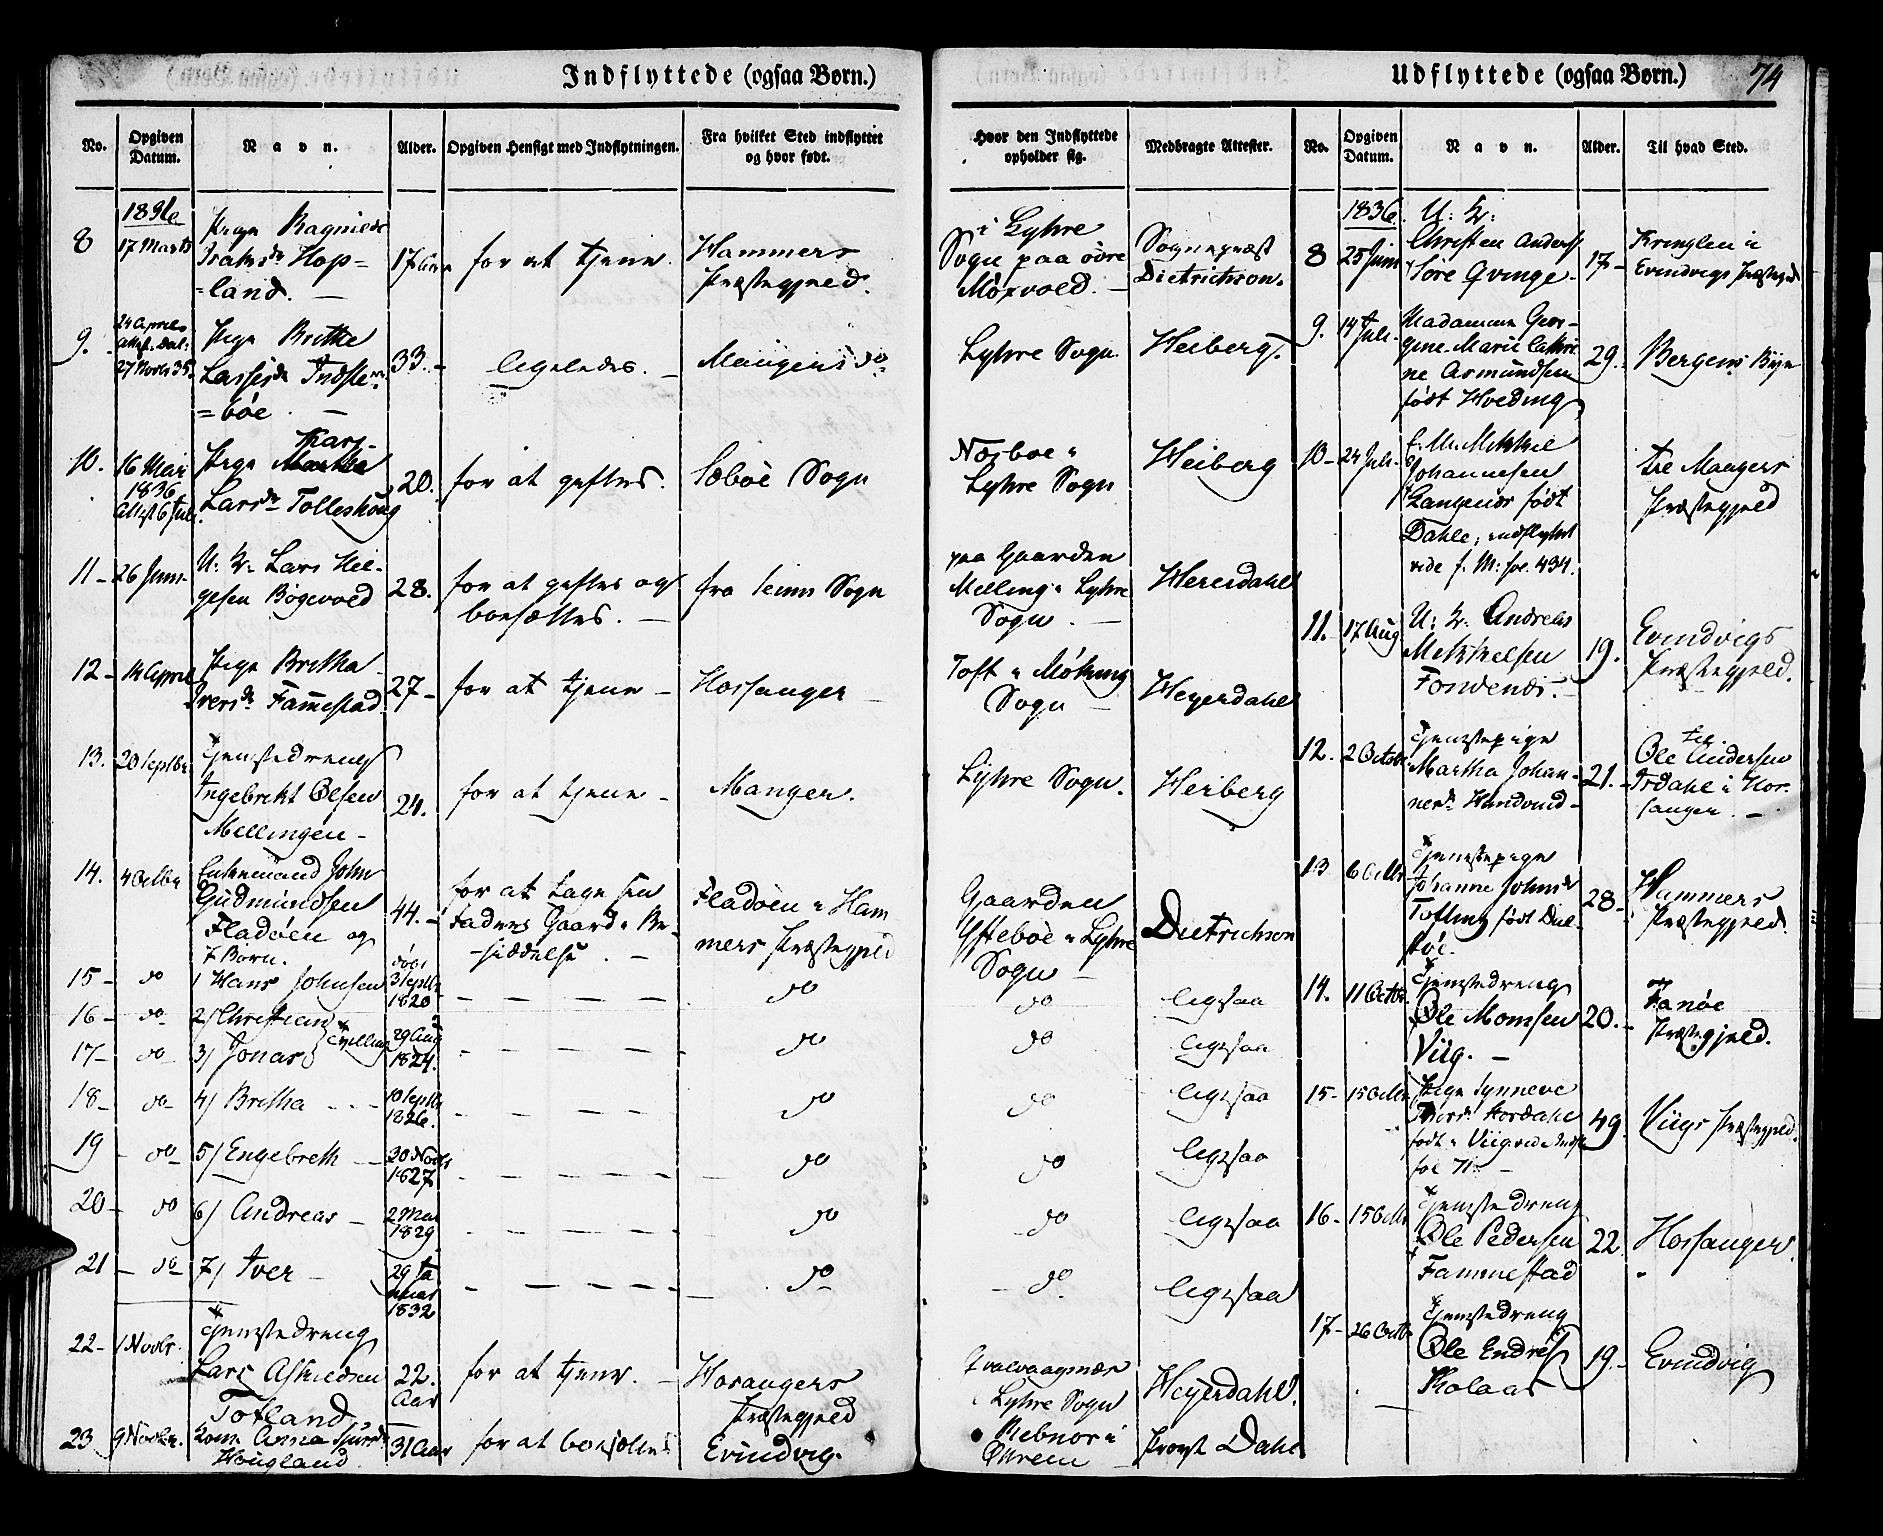 Indflyttede (ogsaa Børn.)
No.
Opgiven Datum.
Navn.
Alder.
Opgiven Hensigt med Indflytningen.
Fra hvilket Sted indflyttet og hvor født.
Hvor den Indflyttede opholder sig.
Medbragte Attester.
1836
8 17 Marts Pige Ragnilde 17 Aar for at tjene. Hammers i Lyhre Sognepræst
Hop= Præstegjeld. Sogn paa øvre Dietrichson.
=land.
9. 24 April Pige Brithe 33. ligeledes. Mangers do Lyhre Sogn Heiberg.
Attest. dat:
27 Novbr 35. Lassesdr Indste=
=bøe.
10. 16 Mai Pige Kari 20. for at giftes. Sæbøe Sogn Heiberg
1836 Larsdr Lyhre Sogn
11 26 Juni U: K: Lars Hel= 28. for at giftes og fra Seim Sogn paa Gaarden
gesen Bøgevold bosættes. Melling i Lyhre
Sogn.
12 14 April Pige Britha 27 for at tjene Hosanger Toft i Sogn Heyerdahl
Iversdr Fammestad
13. 20 Septbr Tjenestedreng 24. for at tjene Manger. Lyhre Sogn. Heiberg
Ingebrikt Olsen
Mellingen
14. 4 Octbr Enkemand John 44. for at tage sin Fladøen i Ham Gaarden Dietrichson
Gudmundsen Faders Gaard i Be= mers Præstegjeld i Lyhre
Fladøen og siddelse. Sogn
7 Børn.
15 do 1 Hans Johnsen 3 Septbr 1820 do do ligesaa
16 do 2) Christian Tvilling 29 Aug 1824.
17 do 3) Jonas do do ligesaa
18 do 4) Britha 10 Septbr 1826. do do ligesaa
19 do 5) Engebreth 30 Novbr 1827 do do ligesaa
20 do 6) Andreas 2 Mai 1829 do do ligesaa
21 do 7) Iver 29 Januar 1832 do do ligesaa
22 1 Novbr. Tjenestedreng 22. Aar for at tjene. Hosangers Heyerdahl.
Lars Præstegjeld Lyhre Sogn
Totland
23 9 Novbr. Kone Anna 31 Aar for at bosættes Evindvig. Rebnor i Provst Dahl
Hougland
Udflyttede (ogsaa Børn.)
74
No.
Opgiven Datum.
Navn.
Alder.
Til hvad Sted.
1836.
8 25 Juni U: K: Christen Anders. 17 i
Qvinge Evindvigs Præstegjeld
9. 14 Juli Madamme Geor= 29. Bergens Bye
gine Marie Cathri
ne Asmundsen
født Hveding
10 24 Juli Mikkel Mangers
Johannesen Præstegjeld
Langenæs født
Dahle, indflyttet
vide f. M: fol. 434.
11. 17 Aug U: K: Andreas 19. Evindvigs
Mikkelsen Præstegjeld.
Fondenæs.
12. 2 Octobr Tjenestepige 21. til
Martha Johan= Ole Andersen
nesdr i Hos=
sanger.
13 6 Octbr Tjenestepige 28 Hammers
Johanne Johnsdr Præstegjeld
født
14. 11 Octbr. Tjenestedreng 20. Fanøe
Ole Monsen Præstegjeld.
Viig.
15 15 Octbr Pige Synneve 49. Viigs Præstegjeld.
født i Viig vide Indfl
fol 71
16 15 Octbr Tjenestedreng 22. Hosanger.
Ole Pedersen
Fammestad
17 26 Octbr Tjenestedreng 19. Evindvig
Ole Endres.
Kolaas